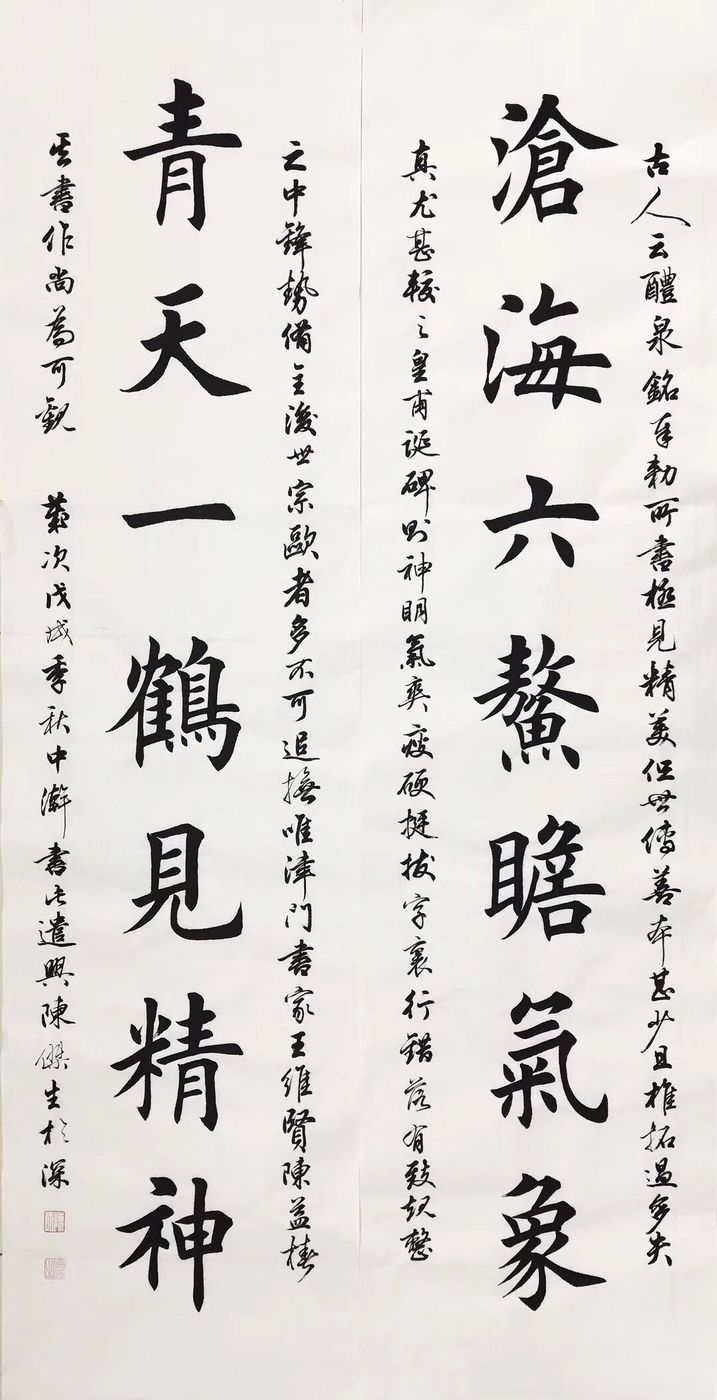 古人云醴泉銘奉勅所書極見精美但世傳善本甚少且椎拓過多失
滄海六鰲瞻氣象
真尤甚較之皇甫誕碑則神明氣爽瘦硬挺拔字裏行錯落有致規整
之中鋒勢備至後世宗歐者多不可追撫唯津門書家王維賢陳益椿
青天一鶴見精神
其書作尚為可觀 歲次戊戌季秋中澣書此遣興陳傑生於深